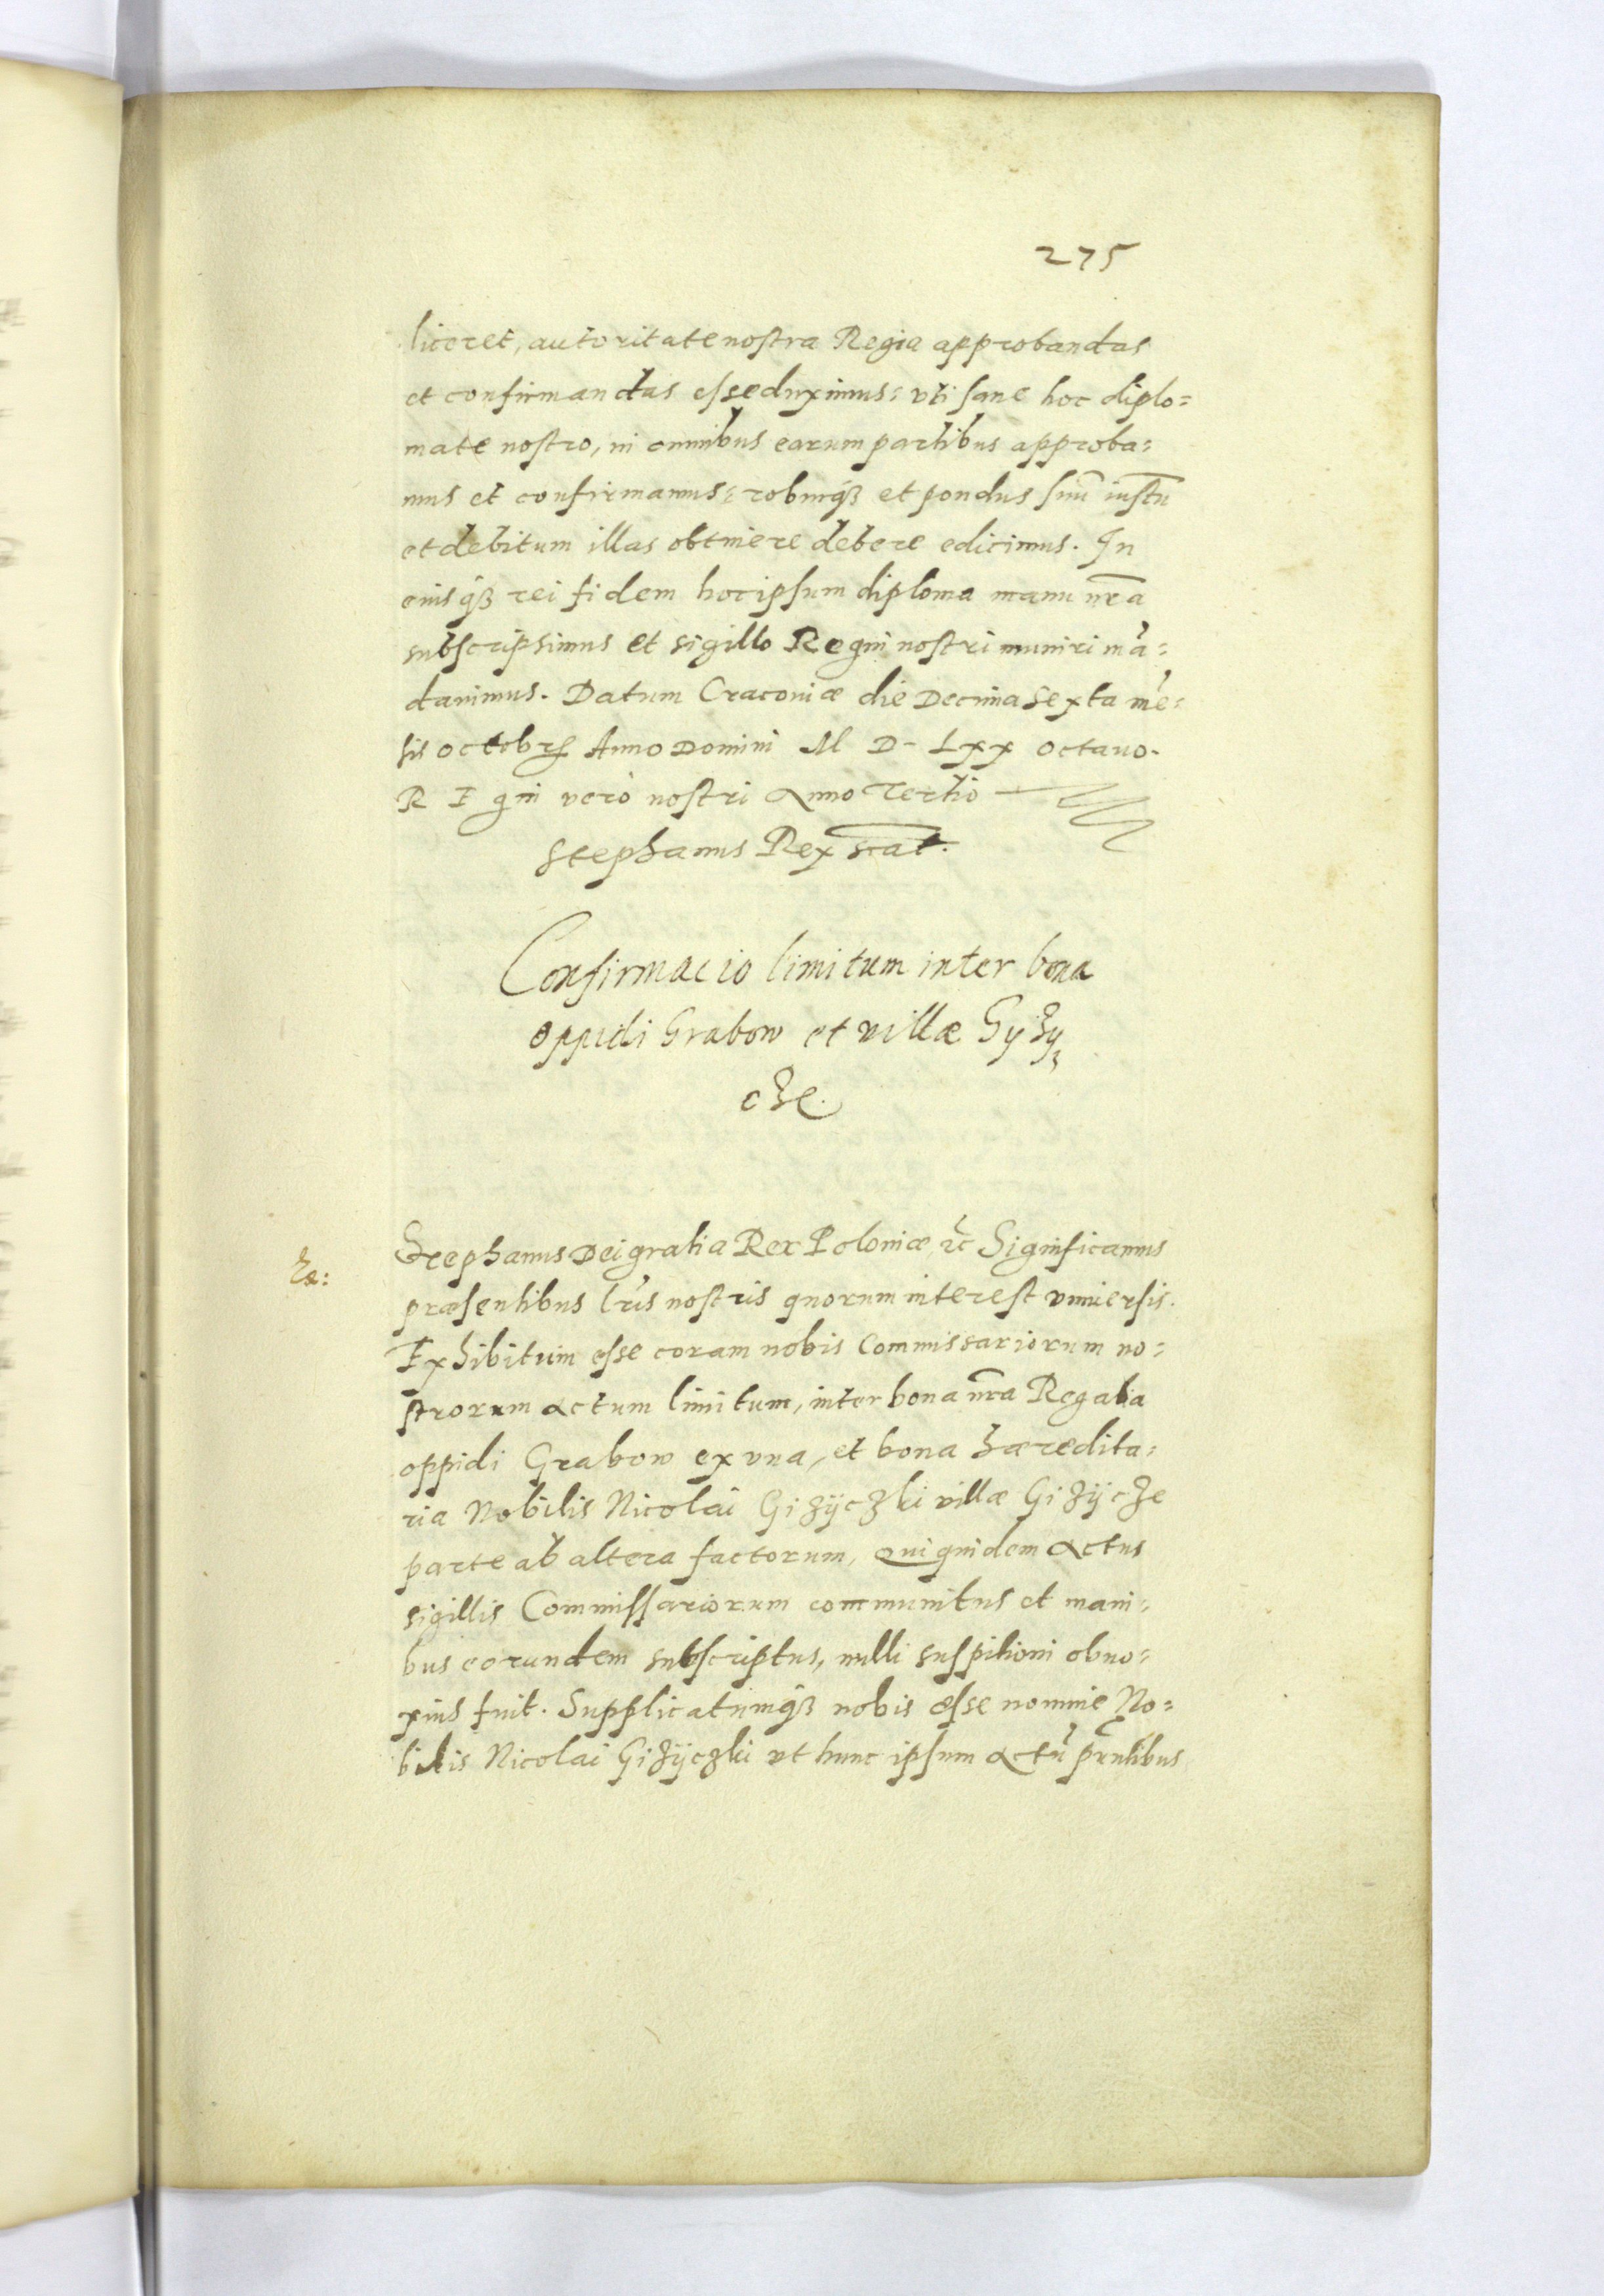 275
liceret, autoritate nostra Regia approbandas
et confirmandas esse duximus: vti sane hoc diplo=
mate nostro, in omnibus earum partibus approba=
mus et confirmamus: roburqȝ et pondus suū iustū
et debitum illas obtinere debere edicimus. In
eius qȝ rei fidem hoc ipsum diploma manu nr̃a
subscripsimus et sigillo Regni nostri muniri mā=
dauimus. Datum Cracouiæ die Decima sexta mē=
sis octobrꝭ Anno Domini M D. Lxx octauo.
R E gni verò nostri Anno Tertio
Stephanus Rex
Confirmacio limitum inter bona
oppidi Grabow et villæ Gyży
cże.
Stephanus Dei gratia Rex Poloniæ, ꝛc̃ Significamus
præsentibus lr̃is nostris quorum interest vniuersis.
Exhibitum esse coram nobis Commissariorum no=
strorum actum limitum, inter bona nr̃a Regalia
oppidi Grabow ex vna, et bona hæredita=
ria Nobilis Nicolai Giżÿcżki villæ Giżÿcże
parte ab altera factorum, Qui quidem Actus
sigillis Commissariorum communitus et mani=
bus eorundem subscriptus, nulli suspitioni obno=
xius fuit. Supplicatumqȝ nobis esse nomine No=
bilis Nicolai Giżÿcżki vt hunc ipsum Actū pr̃ntibus